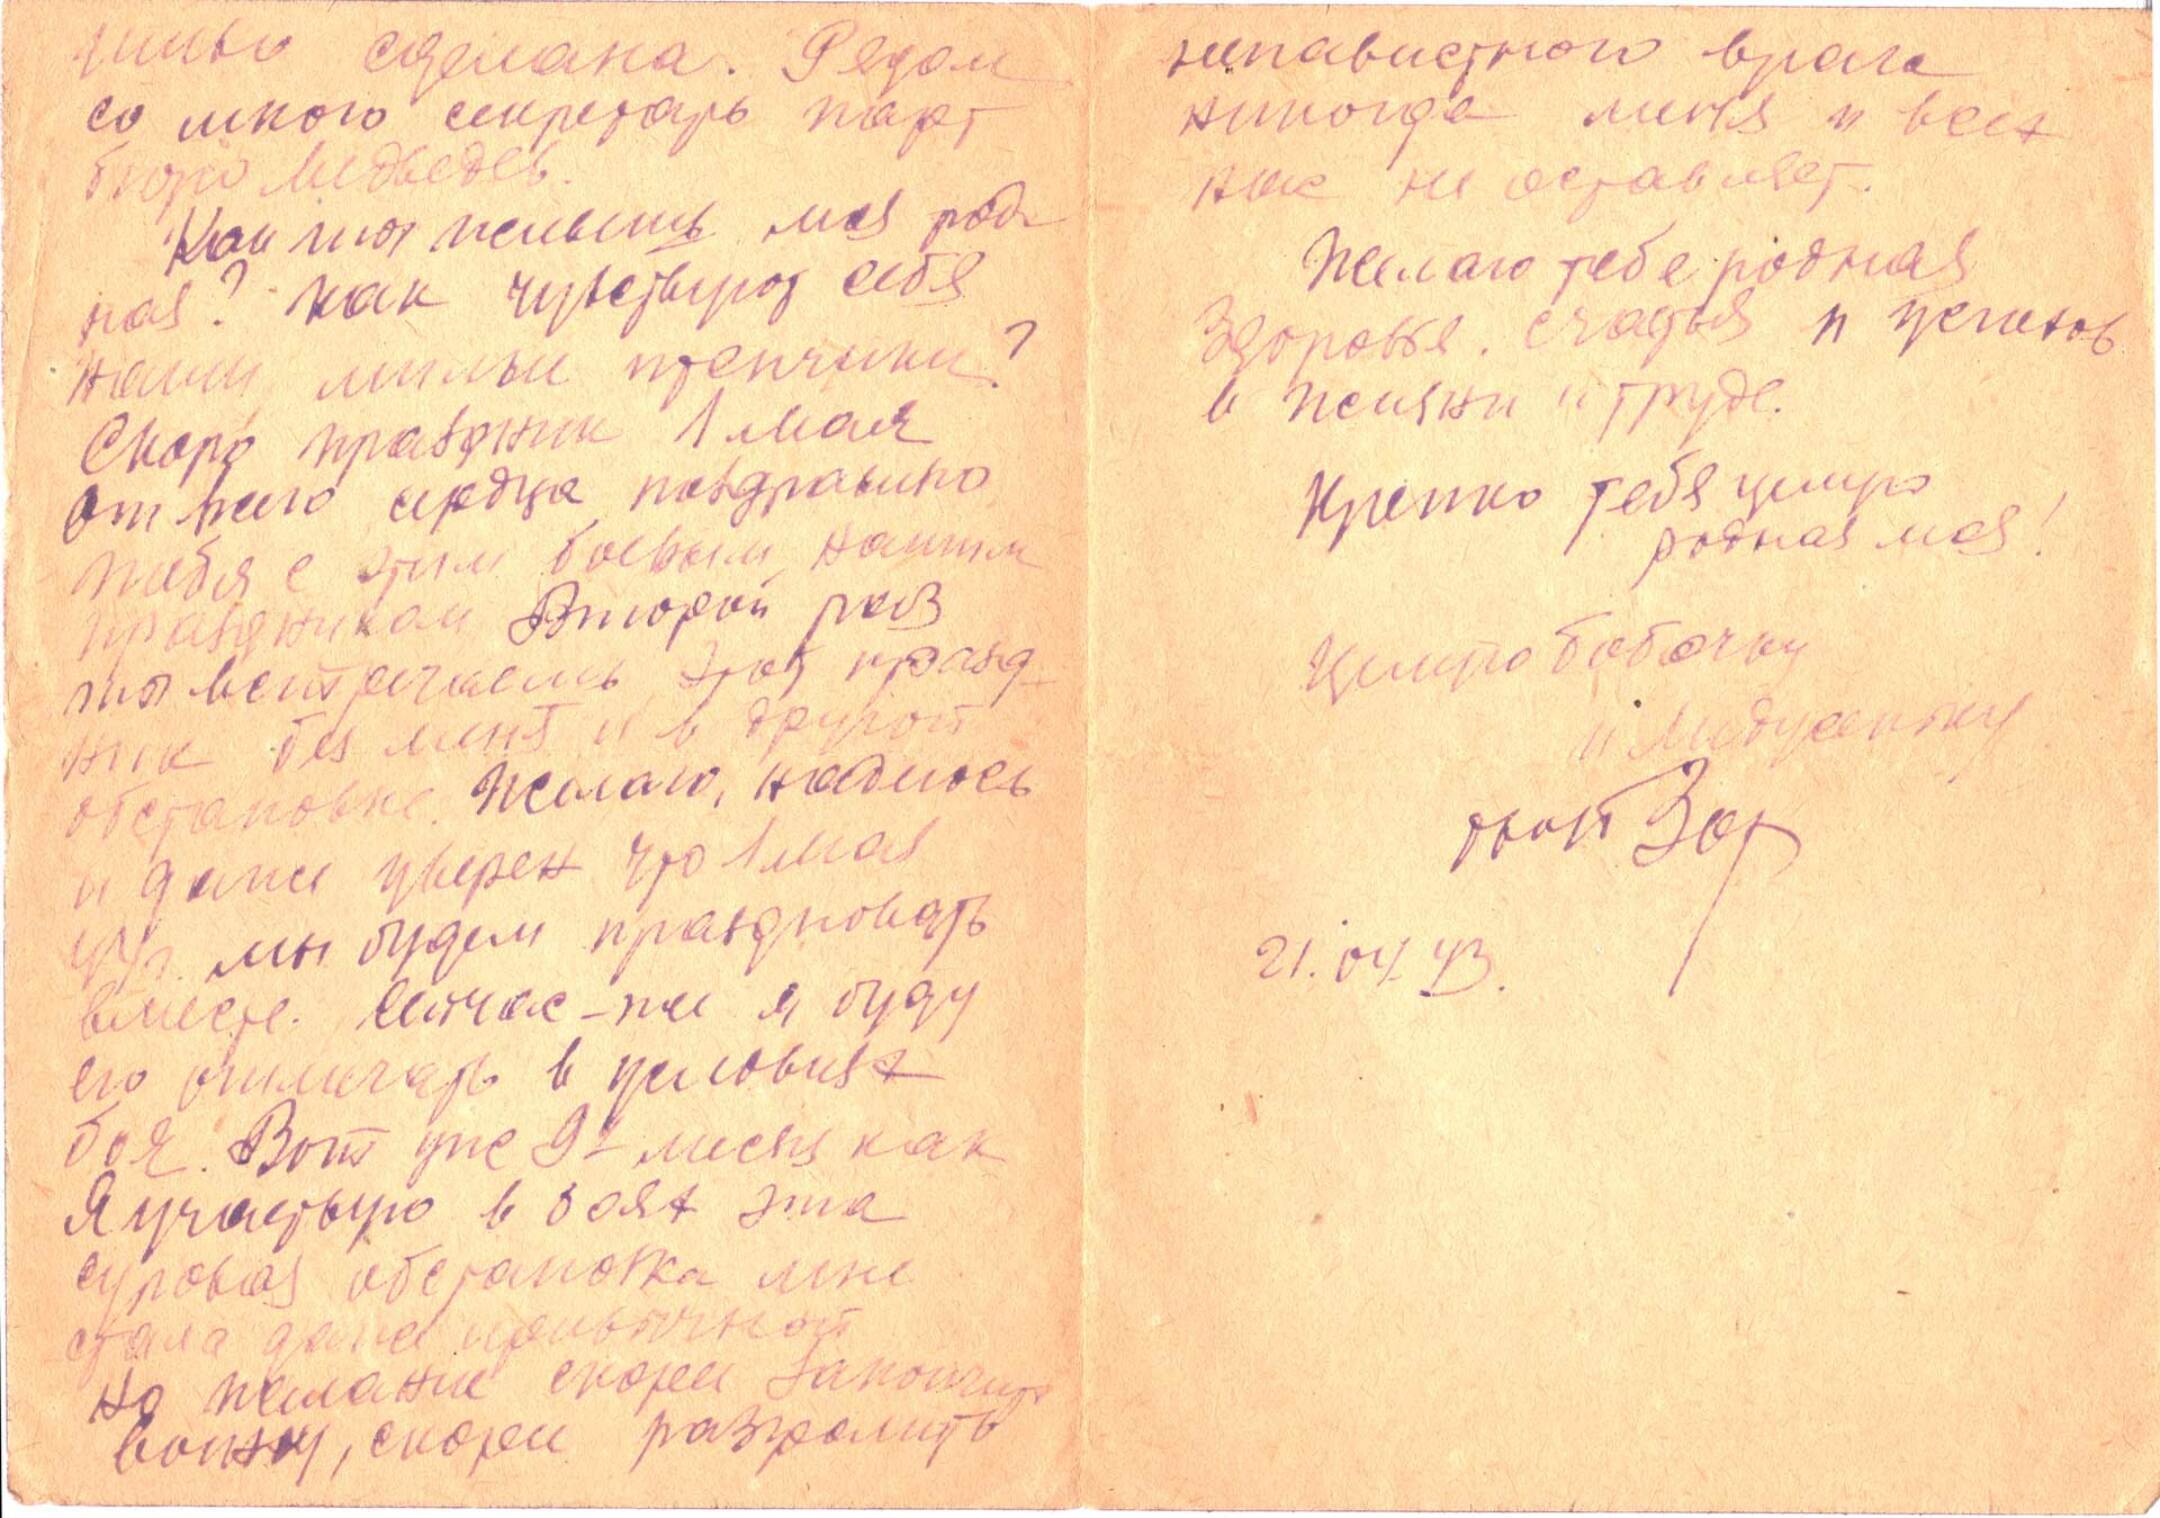 сделана. Рядом
со мною секретарь парт
бюро Медведев.
Как ты живешь моя род-
ная? Как чувствуют себя
наши милые птенчики?
Скоро праздник 1 мая
От всего сердца поздравляю
тебя с этим боевым нашим
праздником Второй раз
ты встречаешь этот празд-
ник без меня и в другой
обстановке. Желаю, надеюсь
и даже уверен что 1 мая
44г. мы будем праздновать
вместе. Сейчас-же я буду
его отмечать в условиях
боя. Вот уже 9й месяц как
Я участвую в боях эта
суровая обстановка мне
стала даже привычной
но желание скорее закончить
войну, скорее разгромить
ненавистного врага
никогда меня и всех
нас не оставляет.
Желаю тебе родная
Здоровья. счастья и успехов
в жизни и труде.
Крепко тебя целую
родная моя!
Целую бабочку
и Лидусеньку
твой
21.04.43.